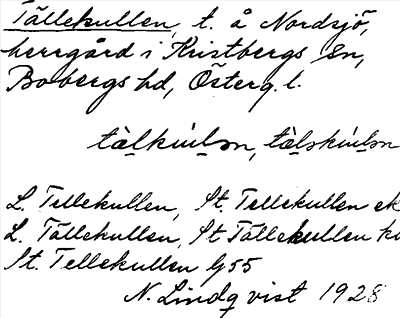 Tällekullen, t. å Nordsjö,
herrgård i Kristbergs sn,
Bobergs hd, Österg. l.
L. Tellekullen, St. Tellekullen ek
L. Tällekullen, St Tällekullen
St. Tellekullen G55
N. Lindqvist 1928